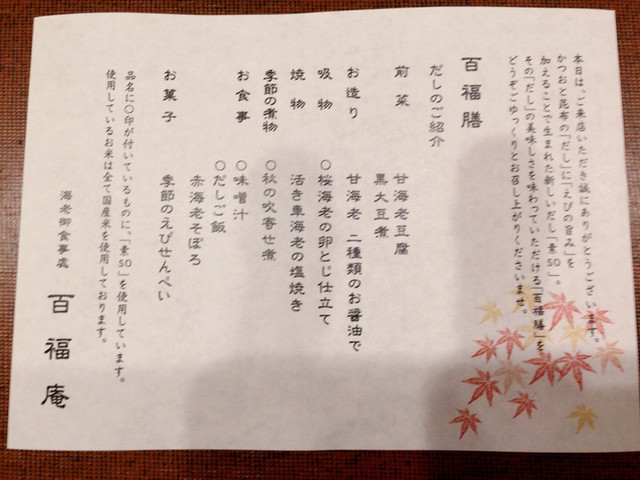 本日は、ご来店いただき誠にありがとうございます。
かつおと昆布の「だし」に「えびの旨み」を
加えることで生まれた新しいだし「素50」。
その「だし」の美味しさを味わっていただける「百福膳」を
どうぞごゆっくりとお召し上がりくださいませ。
百福膳
だしのご紹介
前菜 甘海老豆腐
黒大豆煮
お造り 甘海老 二種類のお醤油で
吸物 〇桜海老の卵とじ仕立て
焼物 活き車海老の塩焼き
季節の煮物 〇秋の吹寄せ煮
お食事 〇味噌汁
〇だしご飯
赤海老そぼろ
お菓子 季節のえびせんべい
品名に〇印が付いているものに、「素50」を使用しています。
使用しているお米は全て国産米を使用しております。
海老御食事處 百福庵